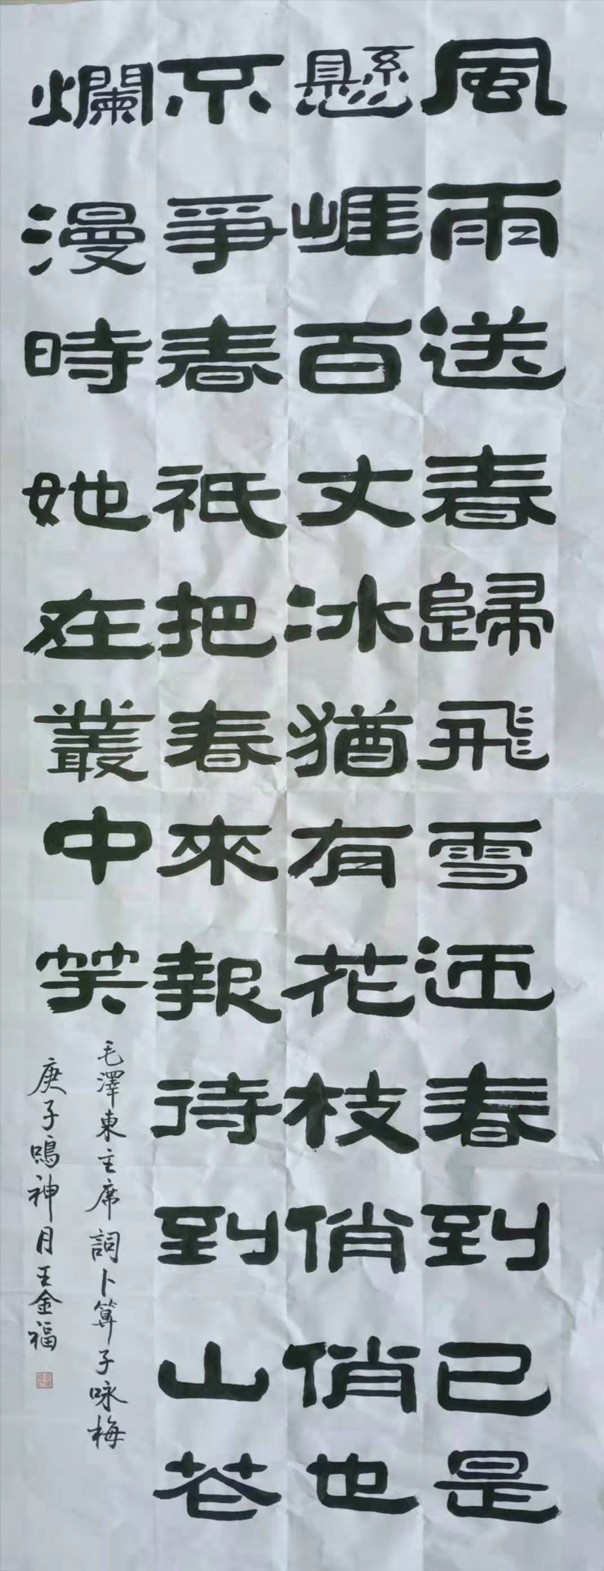 風雨送春歸飛雪迎春到已是
懸崕百丈冰猶有花枝俏俏也
不爭春祇把春來報待到山花
爛漫時她在叢中笑
毛澤東主席詞卜算子咏梅
庚子鳴神月王金福